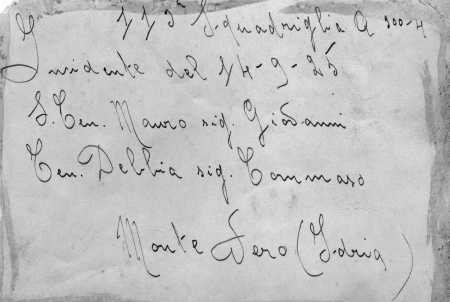 113ª Squadriglia A 300-4
Incidente del 14-9-25
S. Ten. Mauro sig. Giovanni
Ten. Debbia sig. Tommaso
Monte Nero (Idria)